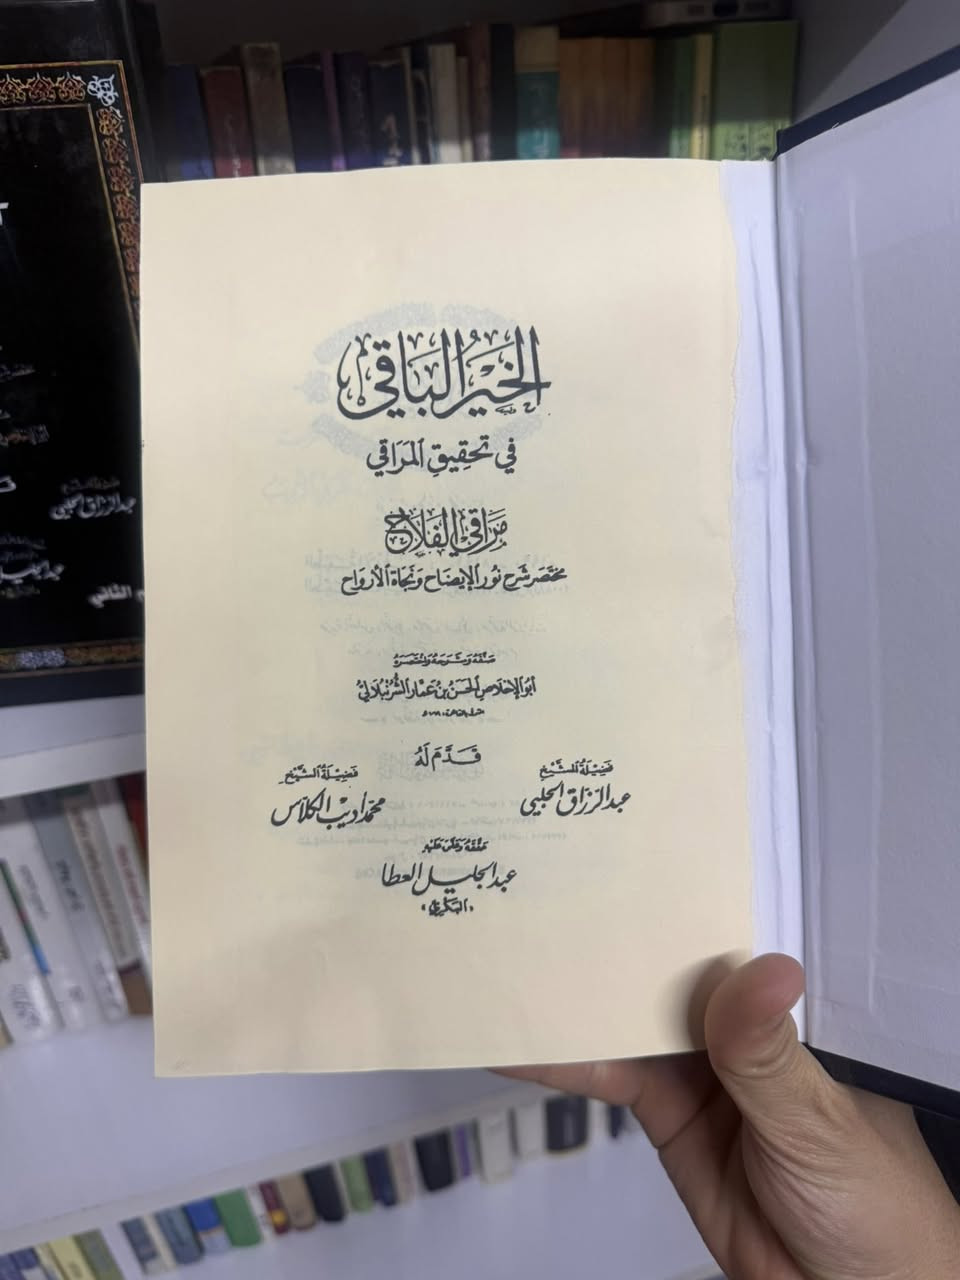 الخَيرُ البَاقِي
في تحقيقِ المَرَاقي
مَرَاقِي الفَلَاح
مختصَر شَرح نُور الإيضَاح وَنجَاة الأرواح
صَنّفهُ وَشرَحهُ وَاختصَرهُ
أبُو الإخلاص الحسَن بن عَمّار الشُّرُنبُلاليُّ
قَدَّمَ لَهُ
فَضيْلَةُ الشَّيْخ
عبد الرّزاق الحلبي
فَضيْلَةُ الشَّيْخ
محمّد أديْب الكلاّس
حَقّقَهُ وَعَلّق عَليْه
عبد الجليل العطا
«البَكري»
عبد الرزاق الحلبي
الثاني